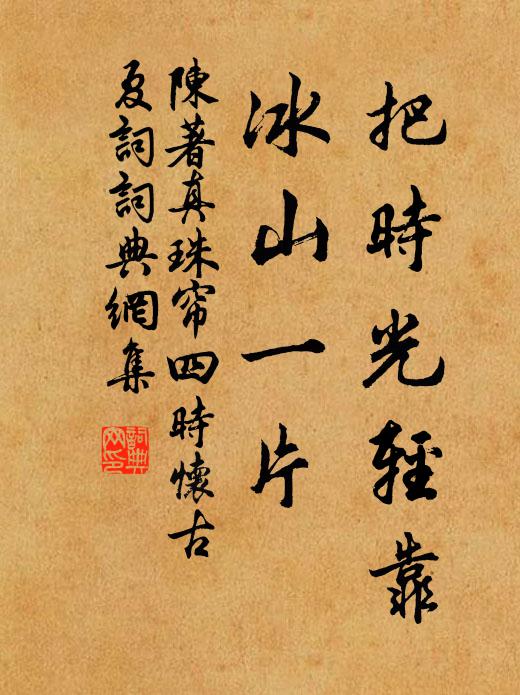 把時光輕靠
冰山一片
陳著真珠帘四時懷古
夏詞詞典網集
詞典网印